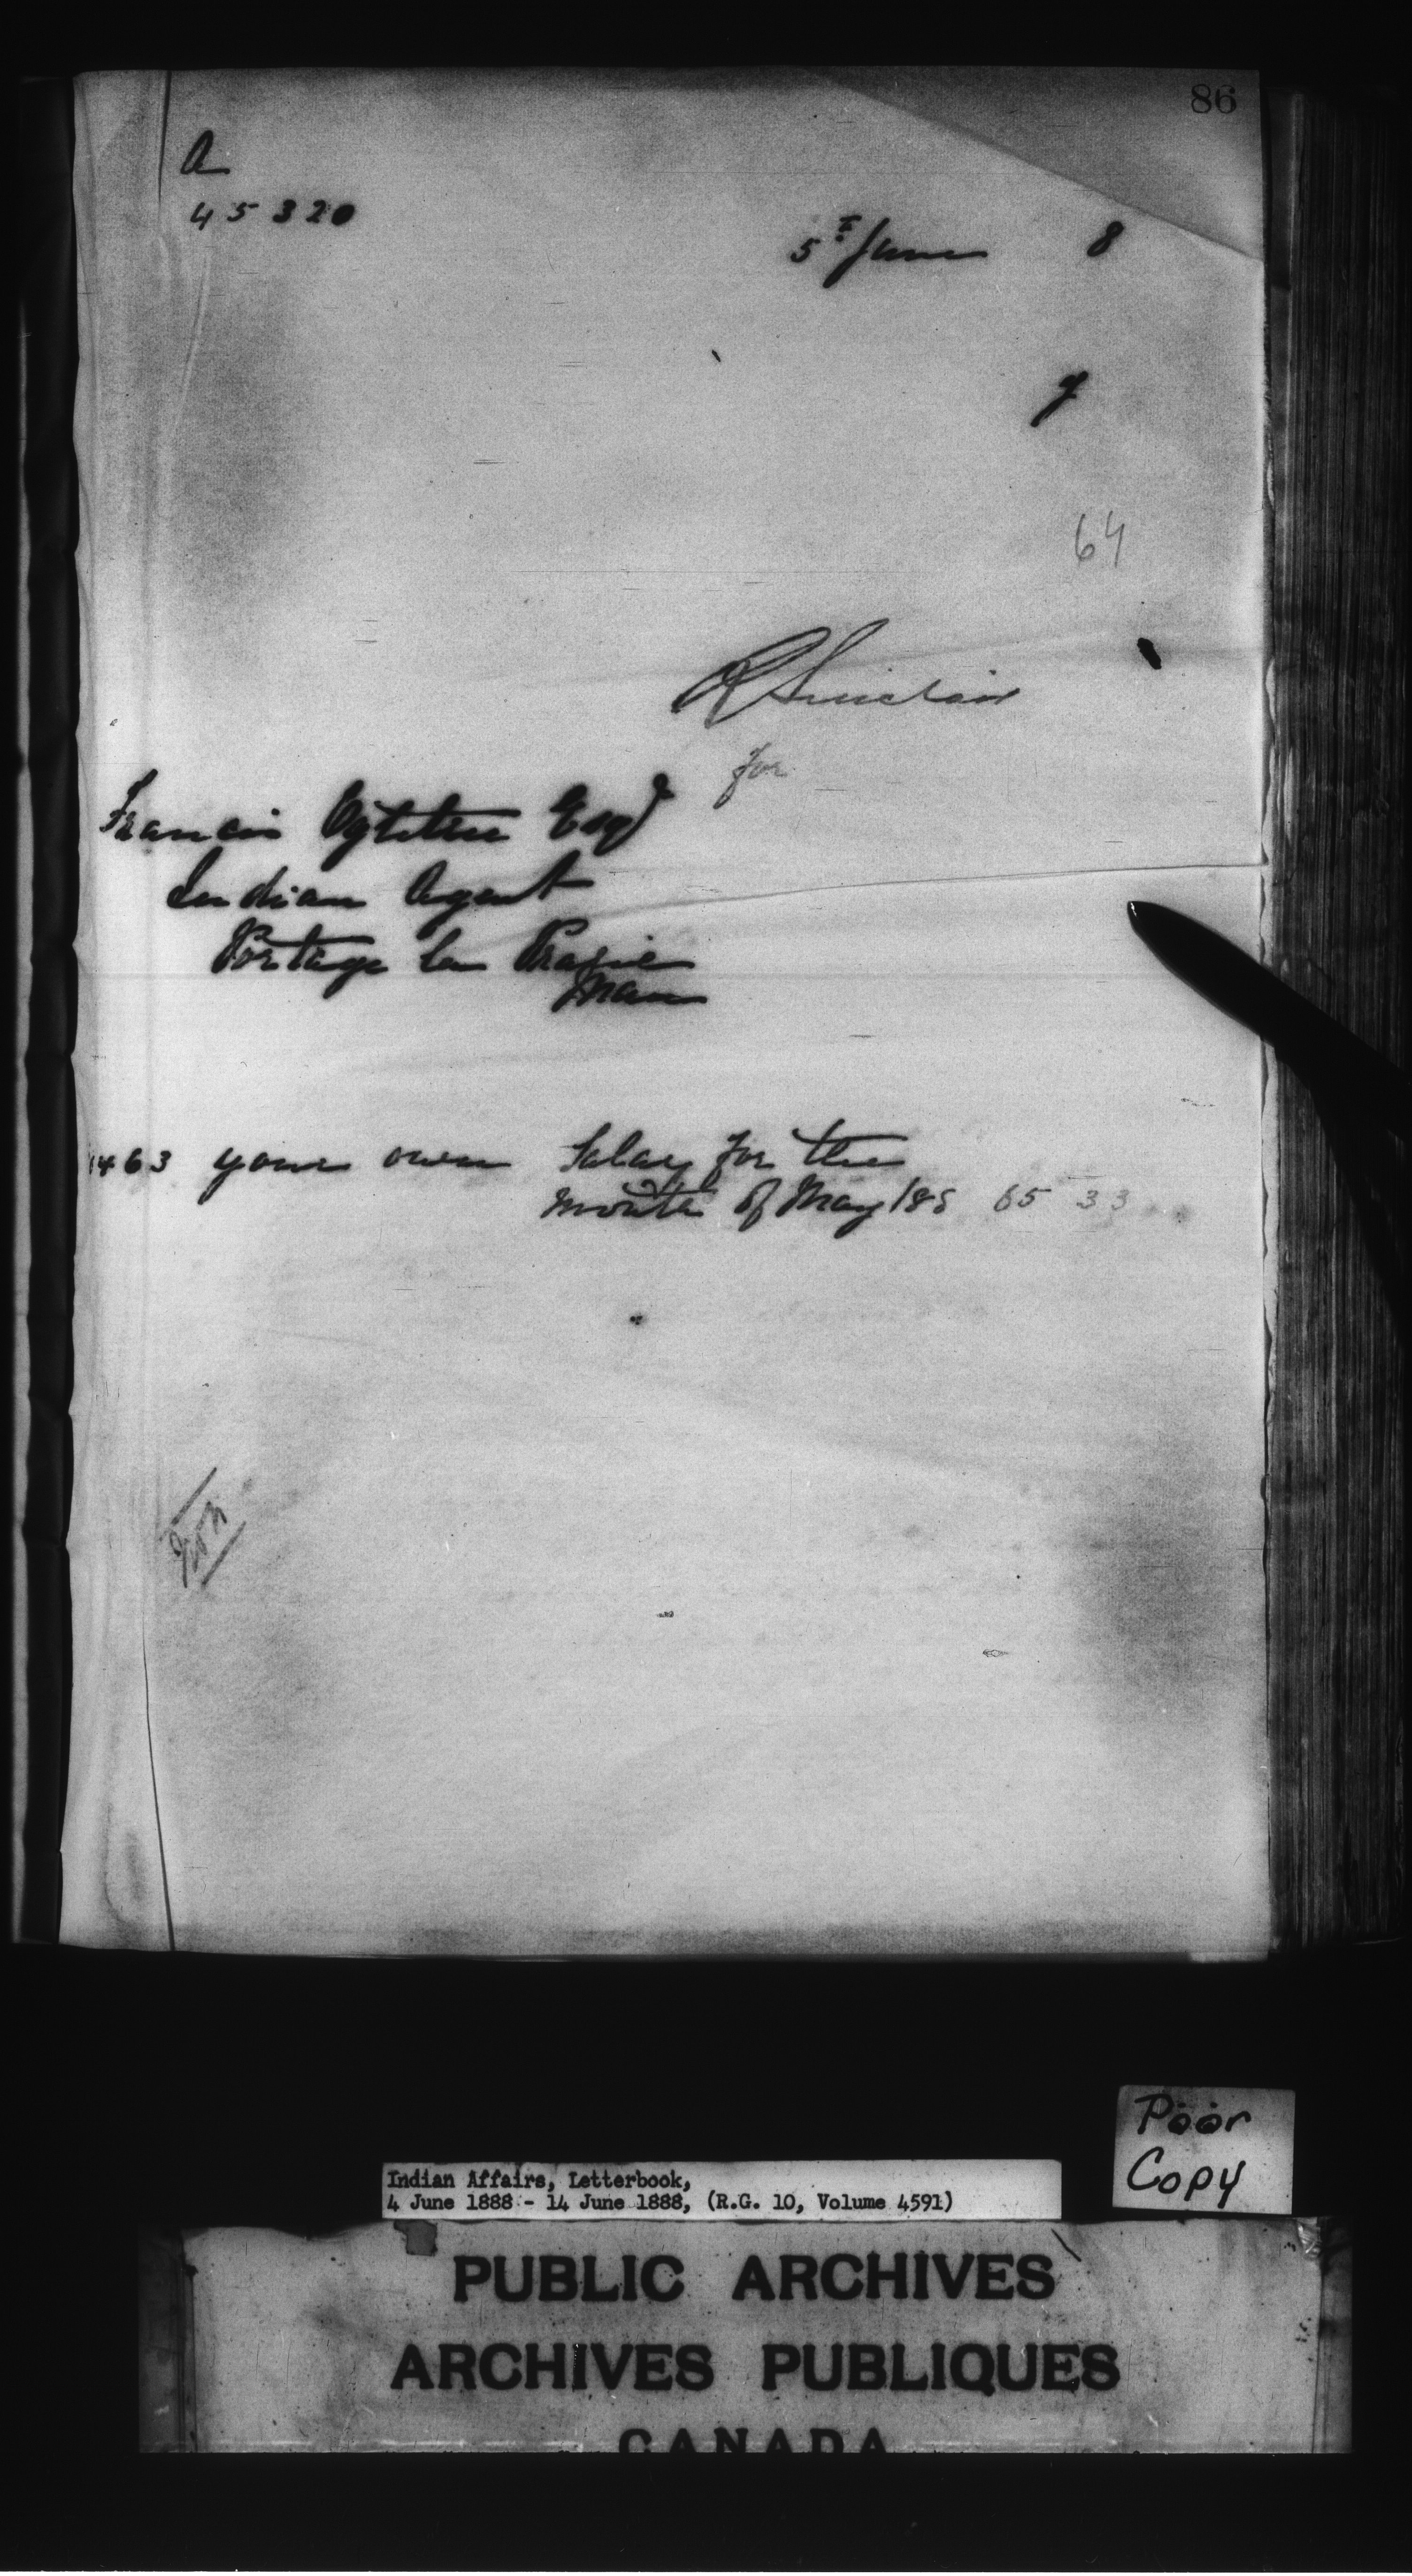 86
A
45320
5th June 8
y
64
R Sinclair
for
Francis Ogletree Esqr
Indian Agent
Portage la Prairie
Man
1463 your own Salary for the
month of May 188 65 33
Poor
Copy
Indian Affairs, Letterbook,
4 June 1888 - 14 June 1888, (R.G. 10, Volume 4591)
PUBLIC ARCHIVES
ARCHIVES PUBLIQUES
CANADA